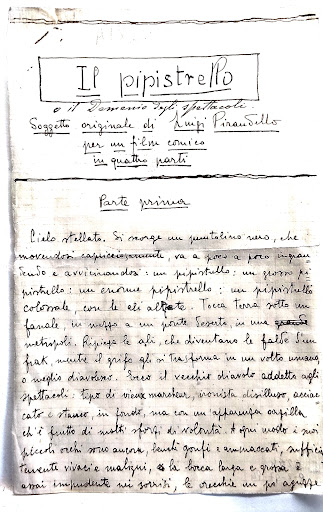 Il pipistrello
o il Demonio degli spettacoli.
Soggetto originale di Luigi Pirandello
per un film comico
in quattro parti
Parte prima
Cielo stellato. Si scorge un puntolino nero, che
movendosi capricciosamente, va a poco a poco ingran
dendo e avvicinandosi: un pipistrello: un grosso pi
pistrello: un enorme pipistrello: un pipistrello
colossale, con le ali alzate. Tocca terra sotto un
fanale, in mezzo a un ponte deserto, in una grande
metropoli. Ripiega le ali, che diventano le falde d'un
frak, mentre il grifo gli si trasforma in un volto umano,
o meglio diavolesco. Ecco il vecchio diavolo addetto agli
spettacoli: tipo di vieux marcheur, ironista disilluso, acciac
cato e stanco, in fondo, ma con un'apparenza
ch'è frutto di molti sforzi di volontà. A ogni modo i suoi
piccoli occhi sono ancora, benchè gonfi e ammaccati, suffici
temente vivaci e maligni, e la bocca larga e grossa è
assai impudente nei sorrisi, le orecchie un po' aguzze